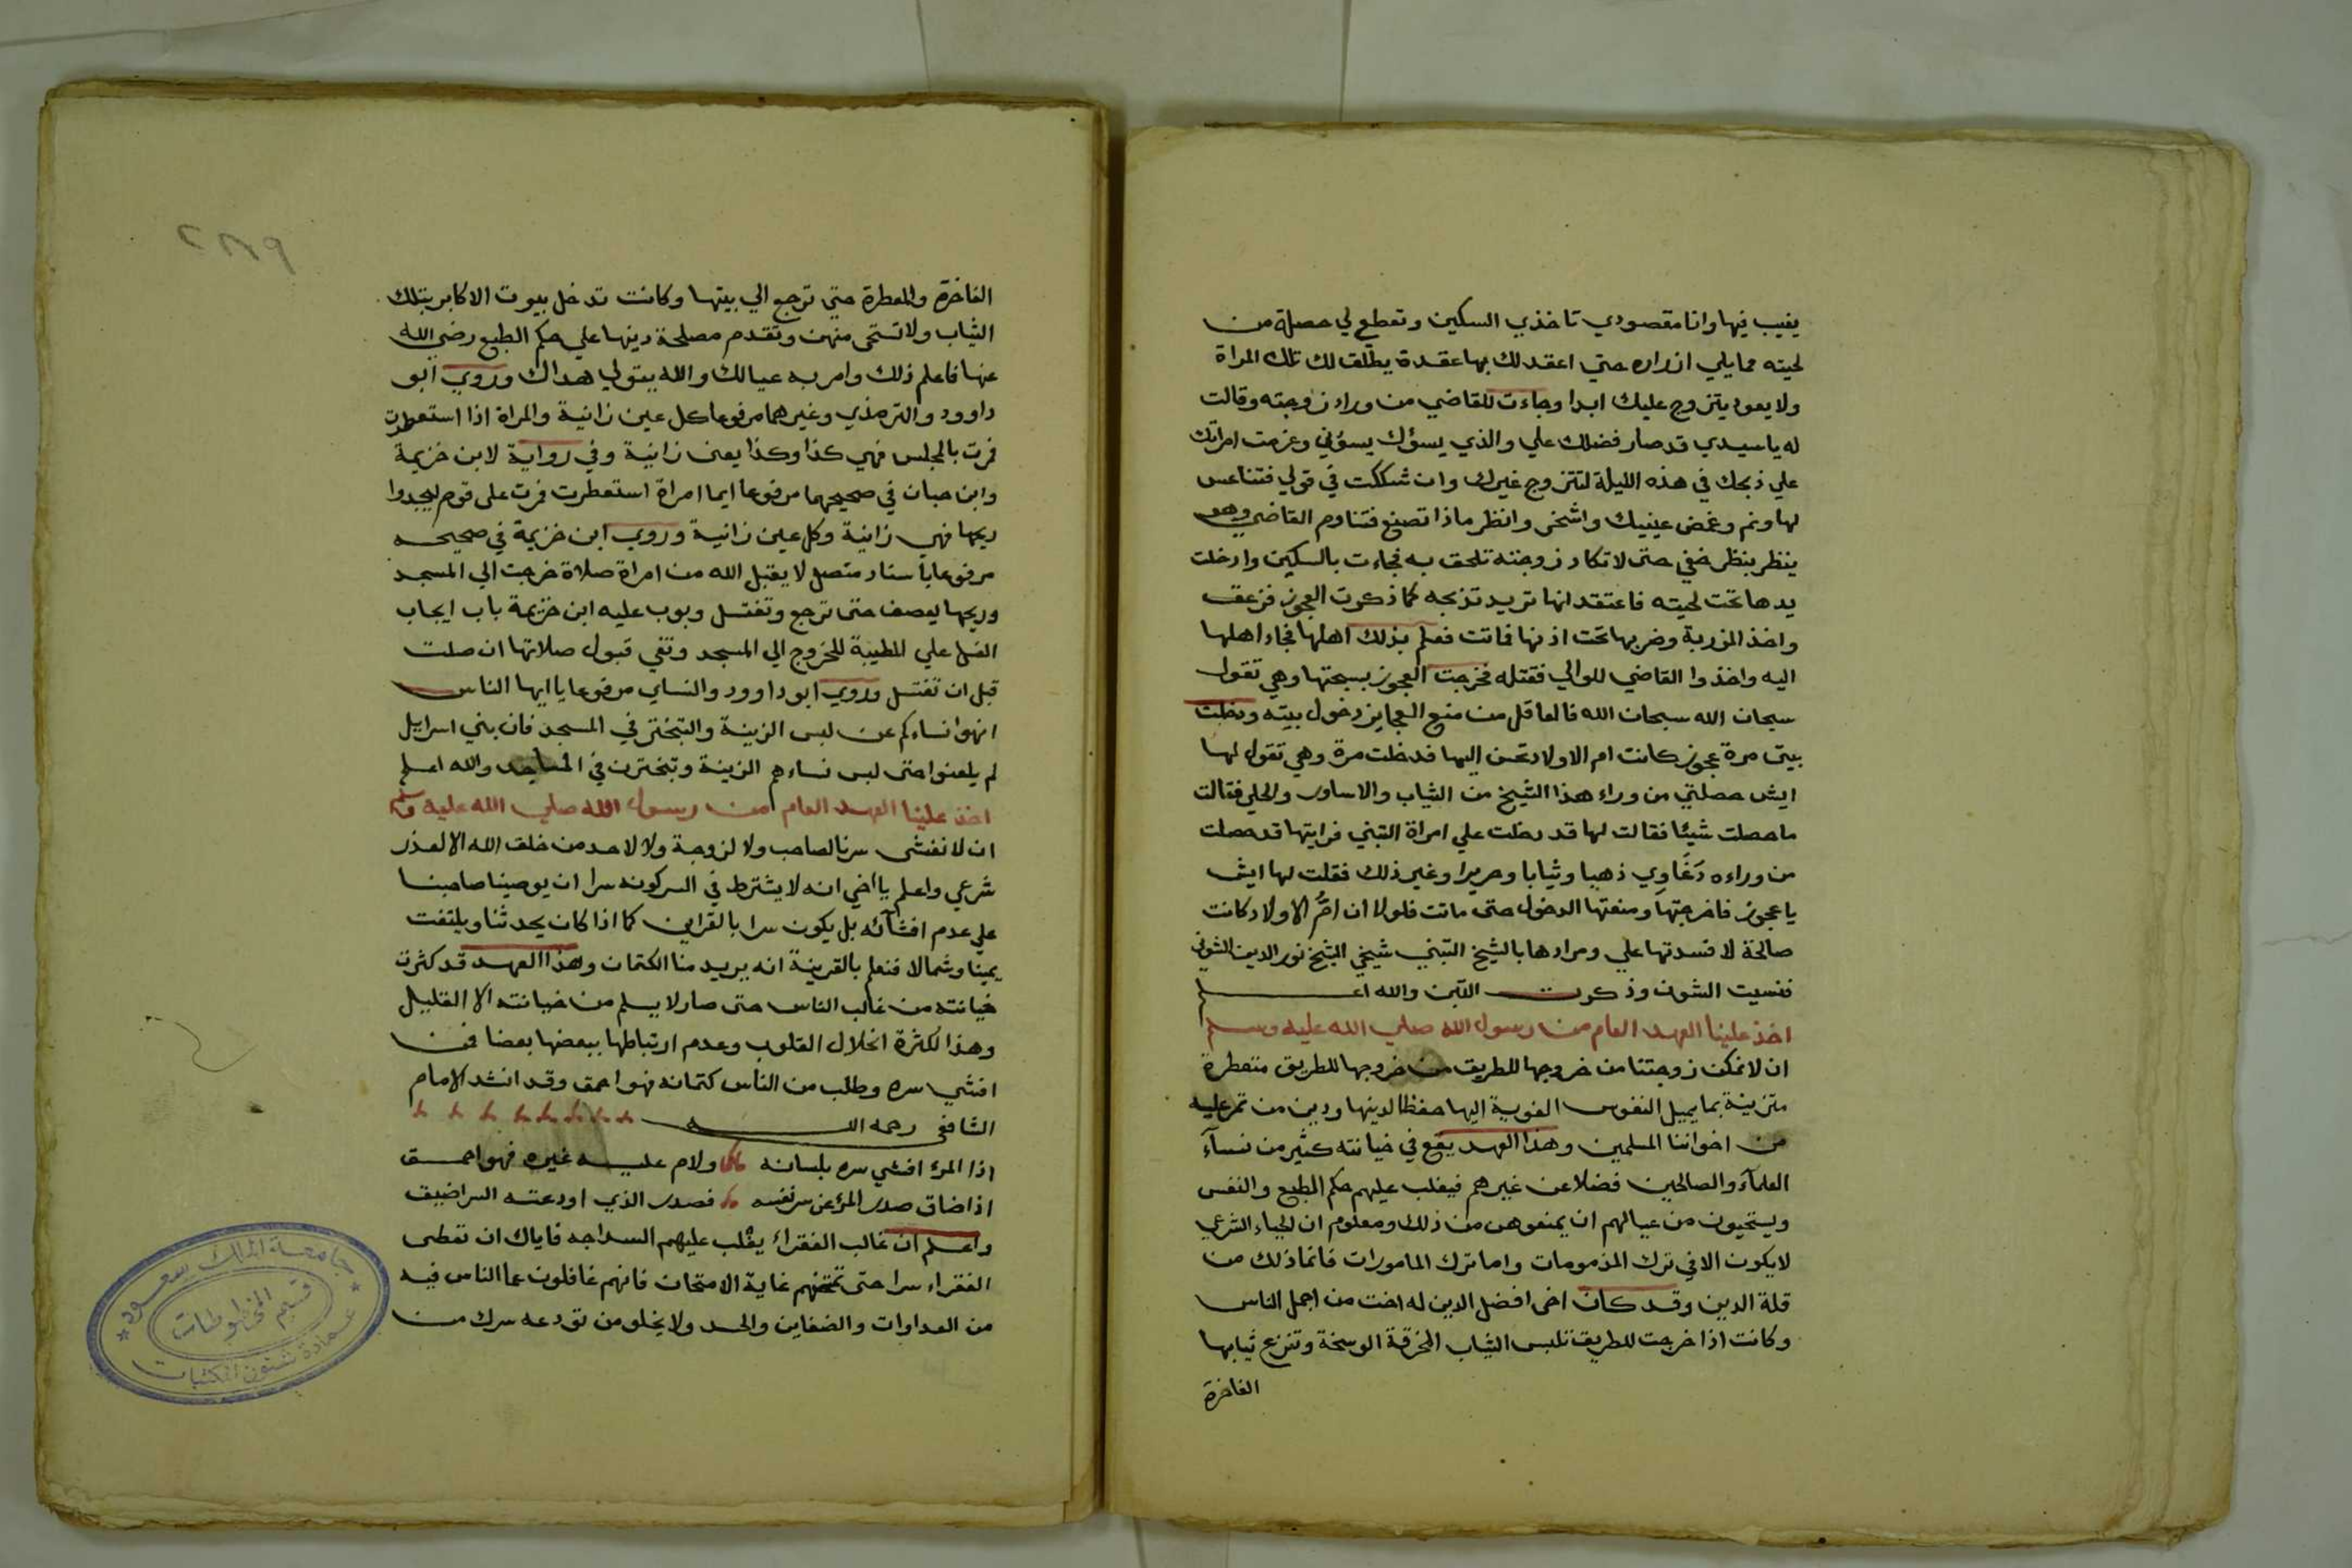 يغيب فيها وانا مقصودي تاخذي السكين وتقطع لي خصلة من
لحيته مما يلي ازراره حتي اعقد لك بها عقدة يطلق لك تلك المراة
ولا يعود يتزوج عليك ابدا وجاءت للقاضي من وراء زوجته وقالت
له يا سيدي قد صار فضلك علي والذي يسؤك يسؤني وعزمت امراتك
علي ذبحك في هذه الليلة لتتزوج غيرك وان شككت في قولي فتناعس
لها ونم وغمض عينيك واشخر وانظر ماذا تصنع فتناوم القاضي وهو
ينظر بنظر خفي حتى لا تكاد زوجته تلحق به فجاءت بالسكين وادخلت
يدها تحت لحيته فاعتقد انها تريد تذبحه كما ذكرت العجوز فزعق
واخذ المزربة وضربها تحت اذنها فماتت فعلم بذلك اهلها فجاء اهلها
اليه واخذوا القاضي للوالي فقتله فخرجت العجوز بسبحتها وهي تقول
سبحان الله سبحان الله فالعاقل من منع العجايز دخول بيته ودخلت
بيتى مرة عجوز كانت ام الاولاد تحسن اليها فدخلت مرة وهي تقول لها
ايش حصلتي من وراء هذا الشيخ من الثياب والاساور والحلي فقالت
ما حصلت شيئا فقالت لها قد دخلت علي امراة التبني فرايتها قد حصلت
من وراءه دَغَاوِي ذهبا وثيابا وحريرا وغير ذلك فقلت لها ايش
يا عجوز فاخرجتها ومنعتها الدخول حتى ماتت فلولا ان امُّ الاولاد كانت
صالحة لافسدتها علي ومرادها بالشيخ التبني شيخي الشيخ نور الدين الشونى
فنسيت الشون وذكرت التبن والله اعلم
اخذ علينا العهد العام من رسول الله صلي الله عليه وسلم
ان لا نمكن زوجتنا من خروجها للطريق من خروجها للطريق متعطرة
متزينة بما يميل النفوس الغوية اليها حفظا لدينها ودين من تمر عليه
من اخواننا المسلمين وهذا العهد يقع في خيانته كثير من نسآء
العلمآء والصالحين فضلا عن غيرهم فيغلب عليهم حكم الطبع والنفس
ويستحيون من عيالهم ان يمنعوهن من ذلك ومعلوم ان الحياء الشرعي
لا يكون الا في ترك المذمومات واما ترك المامورات فانما ذلك من
قلة الدين وقد كان اخى افضل الدين له اخت من اجمل الناس
وكانت اذا خرجت للطريق تلبس الثياب المخرقة الوسخة وتنزع ثيابها
الفاخرة
٢٨٩
الفاخرة والمعطرة حتي ترجع الي بيتها وكانت تدخل بيوت الاكابر بتلك
الثياب ولا تستحى منهن وتقدم مصلحة دينها علي حكم الطبع رضي الله
عنها فاعلم ذلك وامر به عيالك والله يتولي هداك وروي ابو
داوود والترمذي وغيرهما مرفوعا كل عين زانية والمراة اذا استعطرت
فمرت بالمجلس فهي كذا وكذا يعنى زانية وفي رواية لابن خزيمة
وابن حبان في صحيحهما مرفوعا ايما امراة استعطرت فمرت على قوم ليجدوا
ريحها فهي زانية وكل عين زانية وروي ابن خزيمة في صحيحه
مرفوعا باسناد متصل لا يقبل الله من امراة صلاة خرجت الي المسجد
وريحها يعصف حتى ترجع وتغتسل وبوب عليه ابن خزيمة باب ايجاب
الغسل علي المطيبة للخروج الي المسجد ونفي قبول صلاتها ان صلت
قبل ان تغتسل وروي ابو داوود والنساي مرفوعا يا ايها الناس
انهوا نساءكم عن لبس الزينة والتبختر في المسجد فان بني اسرايل
لم يلعنوا حتى لبس نساءهم الزينة وتبخترن في المساجد والله اعلم
اخذ علينا العهد العام من رسول الله صلي الله عليه وسلم
ان لا نفشى سرنا لصاحب ولا لزوجة ولا لاحد من خلق الله الا لعذر
شرعي واعلم يا اخي انه لا يشترط في السر كونه سرا ان يوصينا صاحبنا
علي عدم افشآئه بل يكون سرا بالقراين كما اذا كان يحدثنا ويلتفت
يمينا وشمالا فنعلم بالقرينة انه يريد منا الكتمان وهذا العهد قد كثرت
خيانته من غالب الناس حتى صار لا يسلم من خيانته الا القليل
وهذا لكثرة انحلال القلوب وعدم ارتباطها ببعضها بعضا فمن
افشي سره وطلب من الناس كتمانه فهو احمق وقد انشد الامام
الشافعى رحمه الله
اذا المرء افشي سره بلسانه ولام عليه غيره فهو احمق
اذا ضاق صدر المرء عن سر نفسه فصدر الذي اودعته السر اضيق
واعلم ان غالب الفقراء يغلب عليهم السداجه فاياك ان تعطى
الفقراء سرا حتى تمتحنهم غاية الامتحان فانهم غافلون عما الناس فيه
من العداوات والضغاين والحسد ولا يخلو من تودعه سرك من
جامعة الملك سعود
قسم المخطوطات
عمادة شئون المكتبات